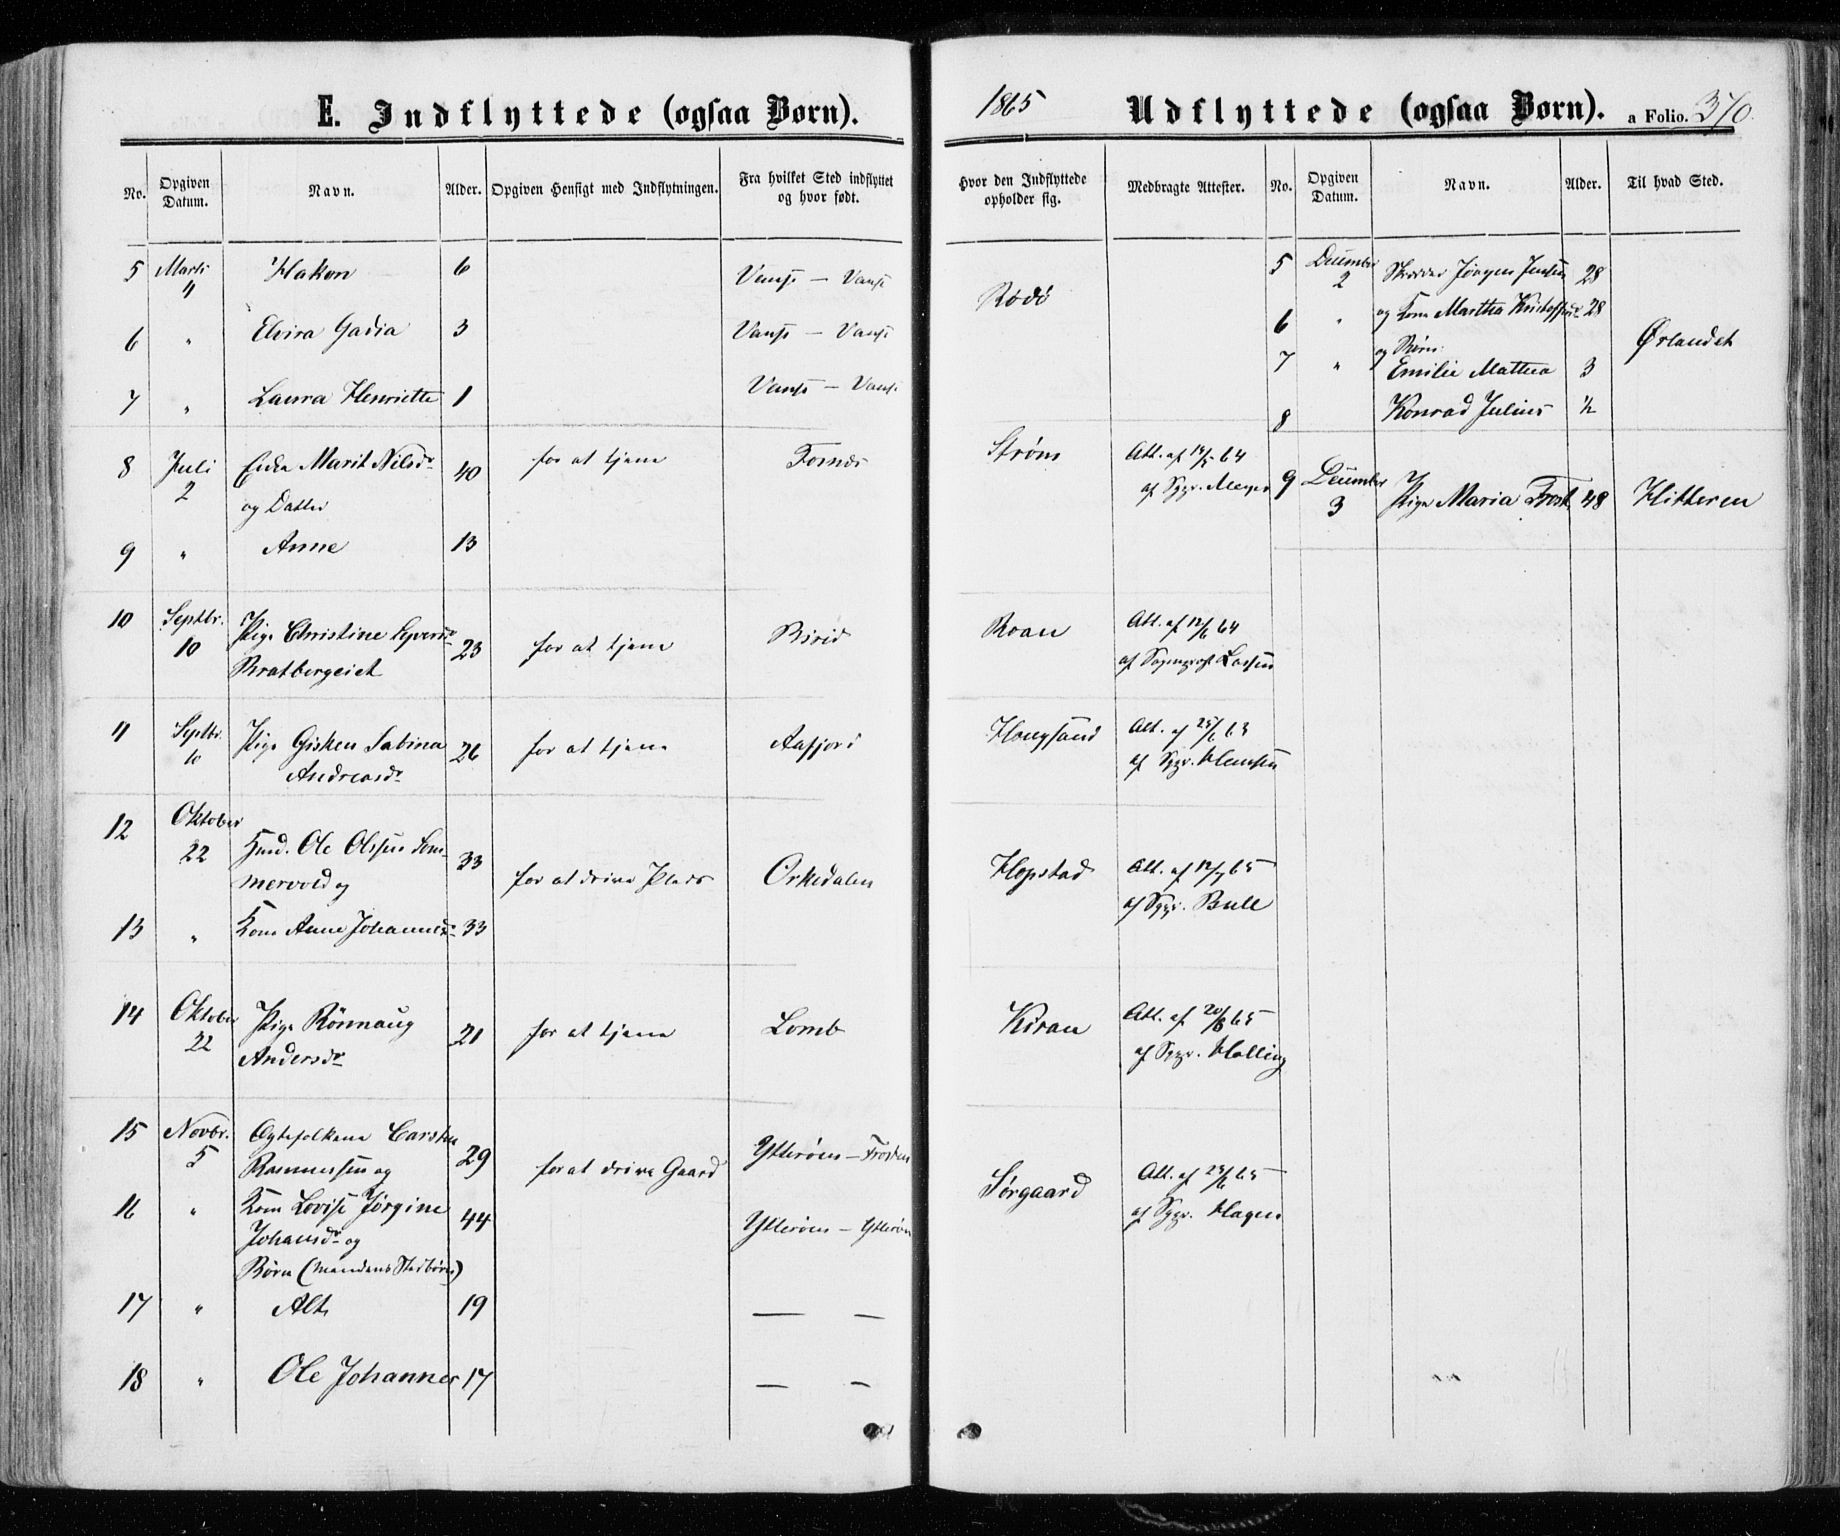 E. Indflyttede (ogsaa Børn).
1865
Udflyttede (ogsaa Børn). a Folio. 370.
No. Opgiven Datum. Navn. Alder. Opgiven Hensigt med Indflytningen. Fra hvilket Sted indflyttet og hvor født.
Hvor den Indflyttede opholder sig. Medbragte Attester. No. Opgiven Datum. Navn. Alder. Til hvad Sted.
5 Marts 4 Hakon 6 Vanse — Vanse Rødø
6 " Elvira Gadia 3 Vanse — Vanse
7 " Laura Henriette 1 Vanse — Vanse
8 Juli 2 Enke Marit Nilsdr 40 for at tjene Fosnæs Strøm Att. af 14/5 64
og Datter af Sgpr. Meyer
9 " Anne 13
10 Septbr. 10 Pige Christine Syversdr 23 for at tjene Birid Roan Att. af 12/6 64
Bratbergeiet af Sognepræst Lassen
11 Septbr. 10 Pige Gisken Sabina 26 for at tjene Aafjord Hougsand Att. af 25/6 63
Andreasdr af Sgpr. Hansen
12 Oktober 22 Huusmd. Ole Olssen Som- 33 for at drive Plads Orkedalen Hopstad Att. af 12/7 65
mervold og af Sgpr. Bull
13 " Kone Anne Johannesdr 33
14 Oktober 22 Pige Rönnaug 21 for at tjene Lomb Kiran Att. af 20/8 65
Andersdr af Sgpr. Halling
15 Novbr. 5 Ægtefolkene Carsten 29 for at drive Gaard Ytterøen — Frosten Sørgaard Att. af 23/6 65
Rasmussen og af Sgpr. Hagen
16 " Kone Lovise Jørgine 44 Ytterøen — Ytterøen
Johansdr og
Børn (Mandens Stedbørn)
17 " Alt 19 — —
18 " Ole Johannes 17 — —
5 December 2 Jørgen Jensen 28
6 " og Kone Martha Kristoffersdr 28 Ørlandet
og Børn
7 " Emilie Mathea 3
8 Konrad Julius 1/2
9 December 3 Pige Maria Frost 48 Hitteren